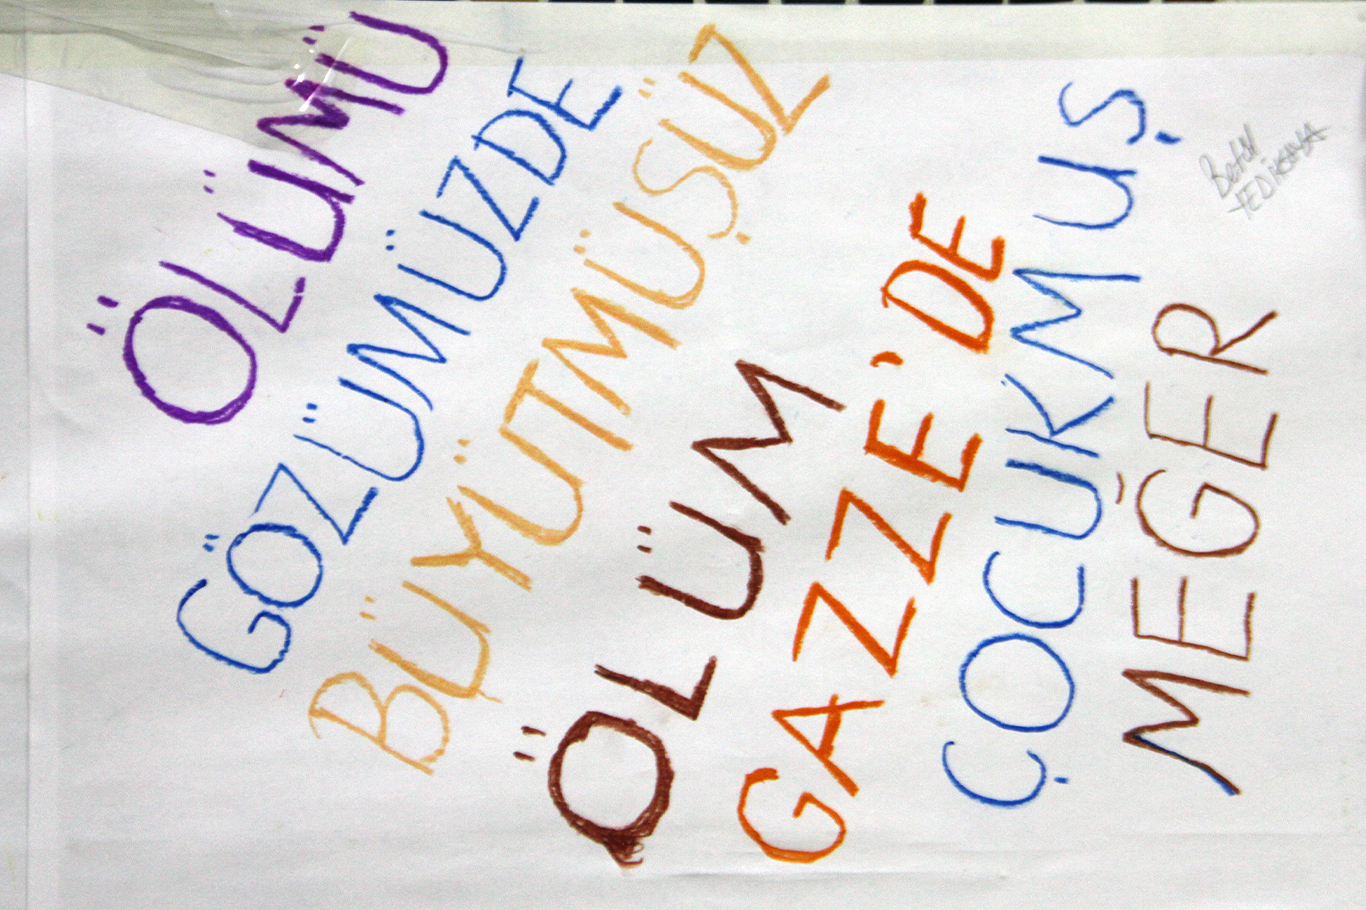 ÖLÜMÜ
GÖZÜMÜZDE
BÜYÜTMÜŞÜZ
ÖLÜM
GAZZE'DE
ÇOCUKMUŞ
MEĞER